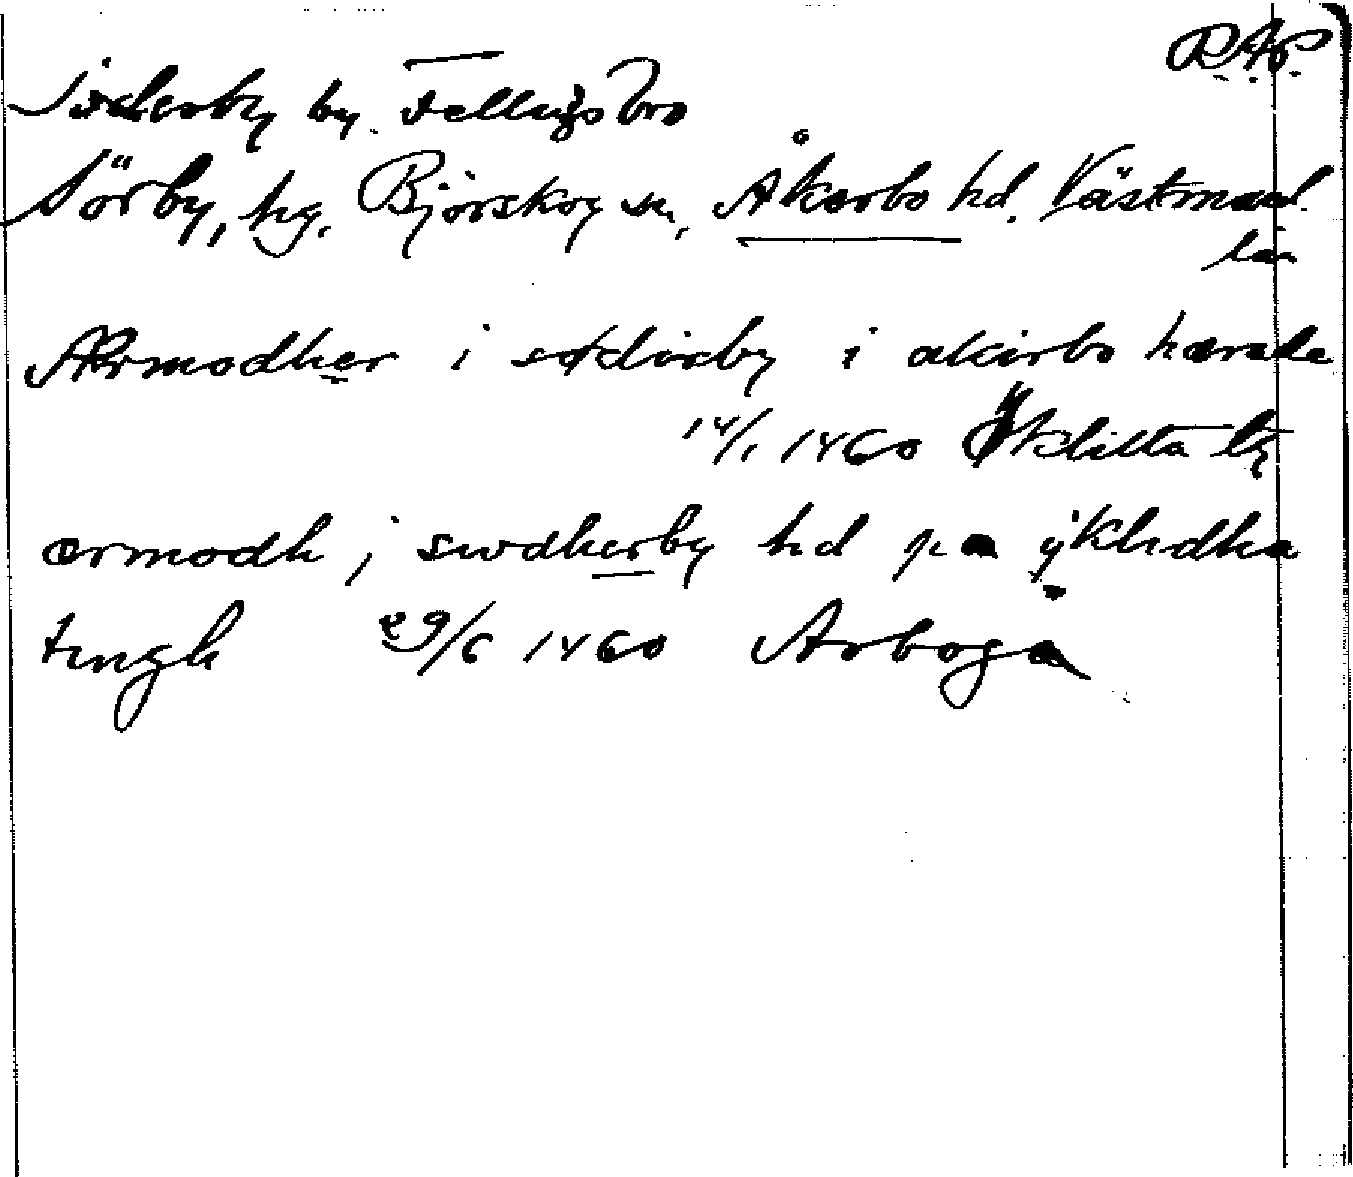 R.A.P.
Söderby by. Fellingsbro
Sörby, hg. Björskog sn, Åkerbo hd. Västmanl.
län
Ærmodher i sødirby i akirbo hærade
14/1 1460 Öklitta by
ærmodh j swdherby hd pa ÿklidha
tingh 29/6 1460 Arboga